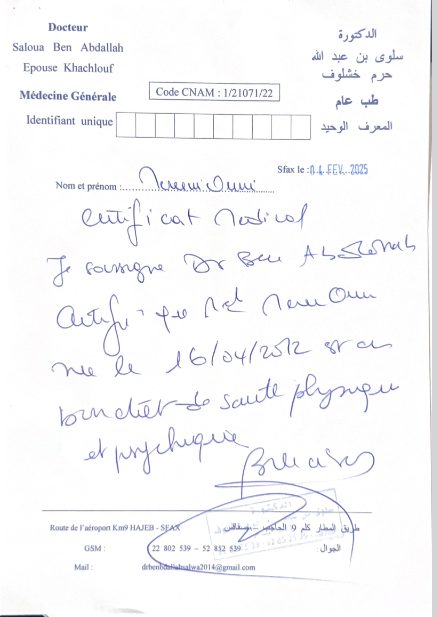 Docteur
Saloua Ben Abdallah
Epouse Khachlouf
Médecine Générale
Identifiant unique
Code CNAM : 1/21071/22
الدكتورة
سلوى بن عبد الله
حرم خشلوف
طب عام
المعرف الوحيد
Sfax le : 04 FEV. 2025
Nom et prénom :
Certificat Medical
Je soussigné Dr Ben Abdallah
Certifie que
née le 16/04/2012 est en
bon état de santé physique
et psychique
Route de l'aéroport Km9 HAJEB - SFAX
طريق المطار كلم 9 الحاجب - صفاقس
GSM : 22 802 539 - 52 852 539 الجوال :
Mail : drbenbdallahsalwa2014@gmail.com